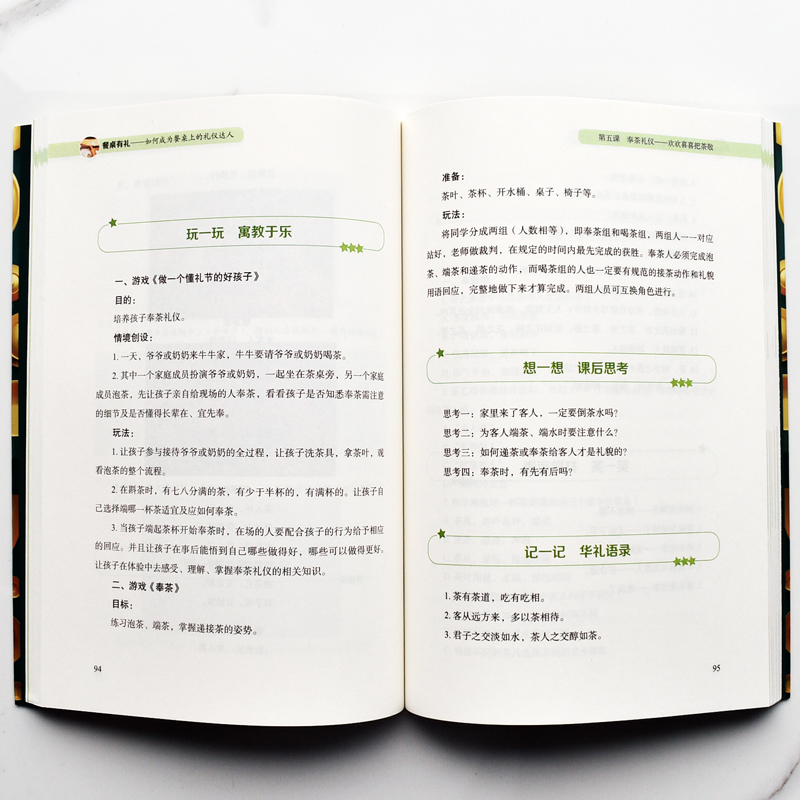 餐桌有礼——如何成为餐桌上的礼仪达人
玩一玩 寓教于乐
一、游戏《做一个懂礼节的好孩子》
目的：
培养孩子奉茶礼仪。
情境创设：
1. 一天，爷爷或奶奶来牛牛家，牛牛要请爷爷或奶奶喝茶。
2. 其中一个家庭成员扮演爷爷或奶奶，一起坐在茶桌旁，另一个家庭
成员泡茶，先让孩子亲自给现场的人奉茶，看看孩子是否知悉奉茶需注意
的细节及是否懂得长辈在、宜先奉。
玩法：
1. 让孩子参与接待爷爷或奶奶的全过程，让孩子洗茶具，拿茶叶，观
看泡茶的整个流程。
2. 在斟茶时，有七八分满的茶，有少于半杯的，有满杯的。让孩子自
己选择端哪一杯茶适宜及应如何奉茶。
3. 当孩子端起茶杯开始奉茶时，在场的人要配合孩子的行为给予相应
的回应。并且让孩子在事后能悟到自己哪些做得好，哪些可以做得更好。
让孩子在体验中去感受、理解、掌握奉茶礼仪的相关知识。
二、游戏《奉茶》
目标：
练习泡茶、端茶，掌握递接茶的姿势。
94
第五课 奉茶礼仪——欢欢喜喜把茶敬
准备：
茶叶、茶杯、开水桶、桌子、椅子等。
玩法：
将同学分成两组（人数相等），即奉茶组和喝茶组，两组人一一对应
站好，老师做裁判，在规定的时间内最先完成的获胜。奉茶人必须完成泡
茶、端茶和递茶的动作，而喝茶组的人也一定要有规范的接茶动作和礼貌
用语回应，完整地做下来才算完成。两组人员可互换角色进行。
想一想 课后思考
思考一：家里来了客人，一定要倒茶水吗？
思考二：为客人端茶、端水时要注意什么？
思考三：如何递茶或奉茶给客人才是礼貌的？
思考四：奉茶时，有先有后吗？
记一记 华礼语录
1. 茶有茶道，吃有吃相。
2. 客从远方来，多以茶相待。
3. 君子之交淡如水，茶人之交醇如茶。
95